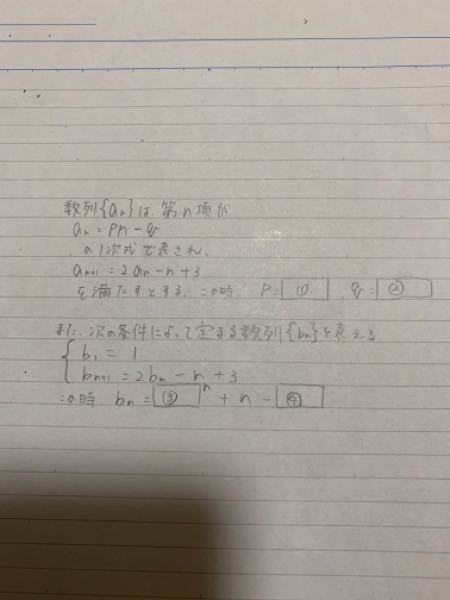 数列{an}は、第n項が
an = pn - q
の1次式で表され、
an+1 = 2an - n + 3
を満たすとする。この時、P= ① , q= ②
また、次の条件によって定まる数列{bn}を考える
b1 = 1
bn+1 = 2bn - n + 3
この時 bn = ③ ^n + n - ④